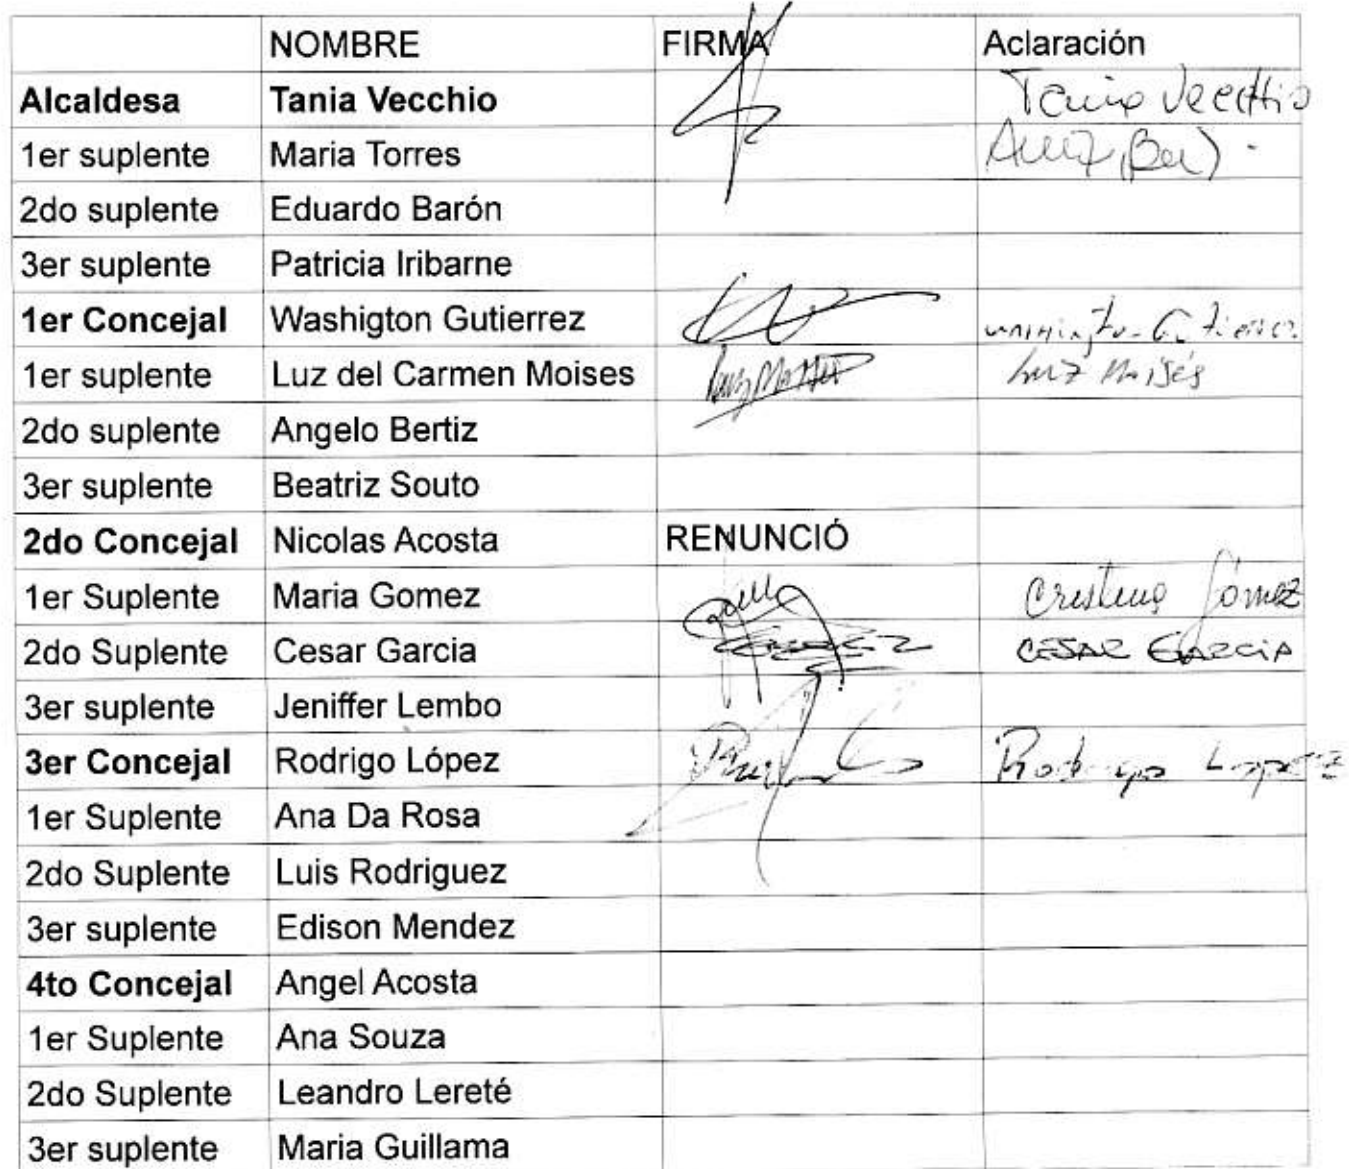 NOMBRE FIRMA Aclaración
Alcaldesa Tania Vecchio Tania Vecchio
1er suplente Maria Torres
2do suplente Eduardo Barón
3er suplente Patricia Iribarne
1er Concejal Washigton Gutierrez
1er suplente Luz del Carmen Moises Luz Moisés
2do suplente Angelo Bertiz
3er suplente Beatriz Souto
2do Concejal Nicolas Acosta RENUNCIÓ
1er Suplente Maria Gomez Cristina Gómez
2do Suplente Cesar Garcia CESAR GARCIA
3er suplente Jeniffer Lembo
3er Concejal Rodrigo López Rodrigo Lopez
1er Suplente Ana Da Rosa
2do Suplente Luis Rodriguez
3er suplente Edison Mendez
4to Concejal Angel Acosta
1er Suplente Ana Souza
2do Suplente Leandro Lereté
3er suplente Maria Guillama